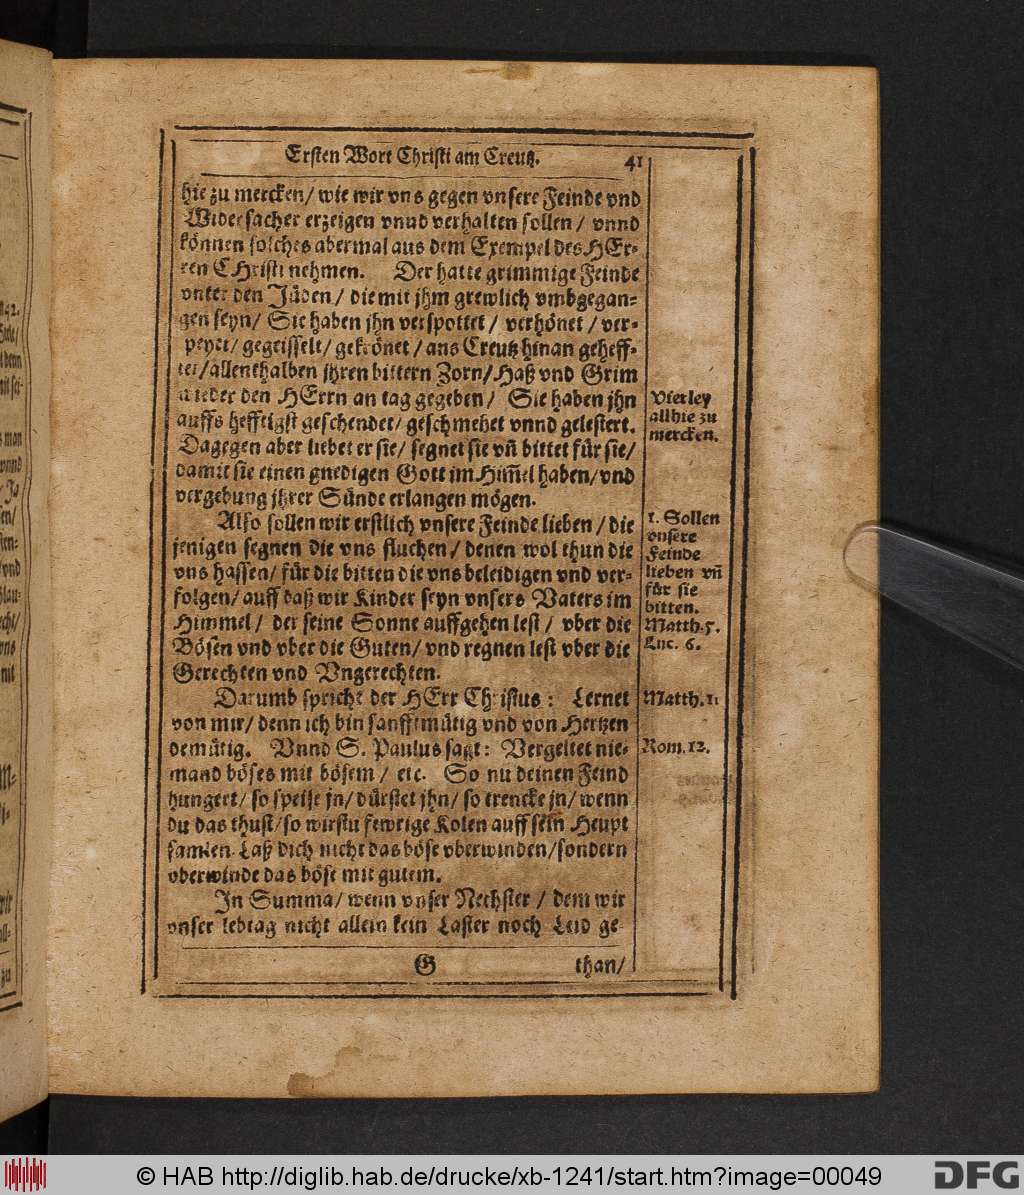 Ersten Wort Christi am Creutz.
41
hie zu mercken/ wie wir vns gegen vnsere Feinde vnd
Widersacher erzeigen vnnd verhalten sollen/ vnnd
können solches abermal aus dem Exempel des HEr-
ren CHristi nehmen. Der hatte grimmige Feinde
vnter den Jüden/ die mit jhm grewlich vmbgegan-
gen seyn/ Sie haben jhn verspottet/ verhönet/ ver-
speyet/ gegeisselt/ gekrönet/ ans Creutz hinan geheff-
tet/ allenthalben jhren bittern Zorn/ Haß vnd Grim
wieder den HErrn an tag gegeben/ Sie haben jhn
auffs hefftigst geschendet/ geschmehet vnnd gelestert.
Dagegen aber liebet er sie/ segnet sie vñ bittet für sie/
damit sie einen gnedigen Gott im Him̃el haben/ vnd
vergebung jhrer Sünde erlangen mögen.
Also sollen wir erstlich vnsere Feinde lieben/ die
jenigen segnen die vns fluchen/ denen wol thun die
vns hassen/ für die bitten die vns beleidigen vnd ver-
folgen/ auff daß wir Kinder seyn vnsers Vaters im
Himmel/ der seine Sonne auffgehen lest/ vber die
Bösen vnd vber die Guten/ vnd regnen lest vber die
Gerechten vnd Vngerechten.
Darumb spricht der HErr Christus: Lernet
von mir/ denn ich bin sanfftmütig vnd von Hertzen
demütig. Vnnd S. Paulus sagt: Vergeltet nie-
mand böses mit bösem/ etc. So nu deinen Feind
hungert/ so speise jn/ dürstet jhn/ so trencke jn/ wenn
du das thust/ so wirstu fewrige Kolen auff sein Heupt
samlen. Laß dich nicht das böse vberwinden/ sondern
vberwinde das böse mit gutem.
In Summa/ wenn vnser Nechster/ dem wir
vnser lebtag nicht allein kein Laster noch Leid ge-
G
than/
Vierley
allhie zu
mercken.
1. Sollen
vnsere
Feinde
lieben vñ
für sie
bitten.
Matth. 5.
Luc. 6.
Matth. 11
Rom. 12.
© HAB http://diglib.hab.de/drucke/xb-1241/start.htm?image=00049
DFG